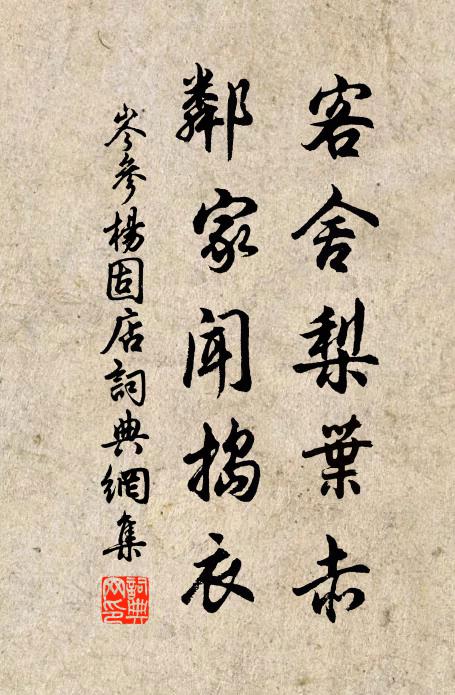 客舍梨葉赤
鄰家聞搗衣
岑參楊固店詞典網集
詞典